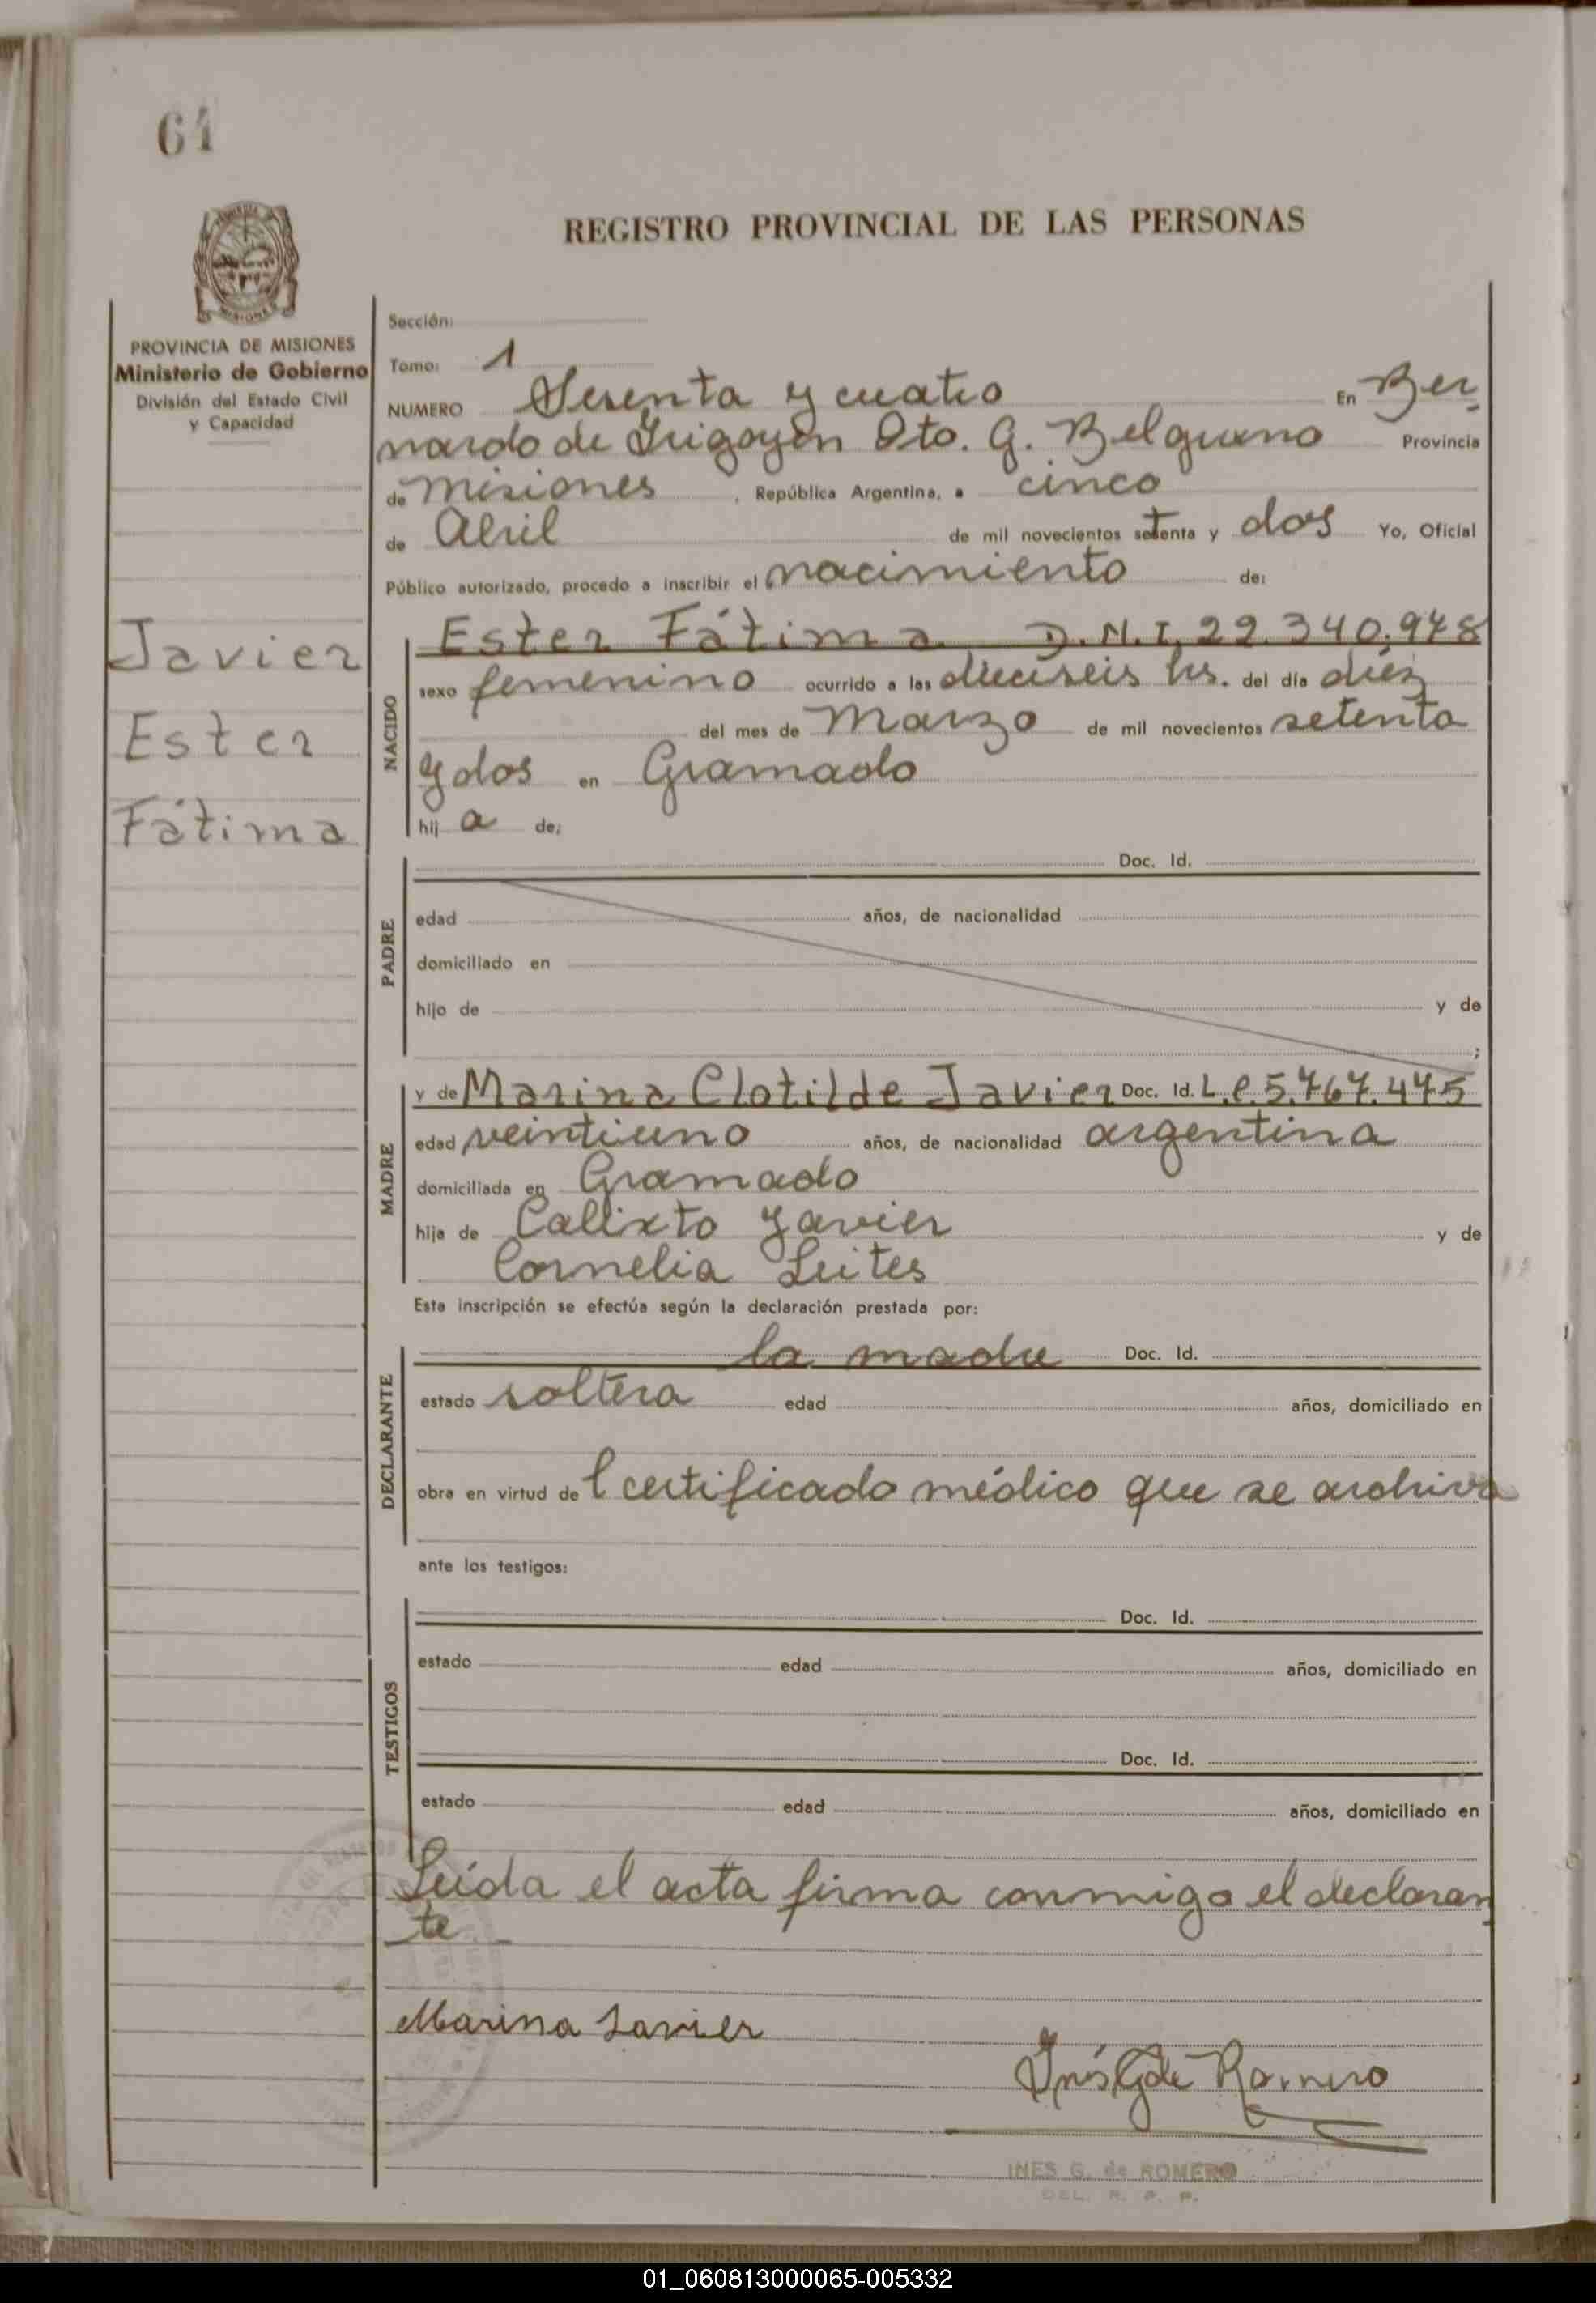 64
REGISTRO PROVINCIAL DE LAS PERSONAS
PROVINCIA DE MISIONES
Ministerio de Gobierno
División del Estado Civil
y Capacidad
Javier
Ester
Fátima
Sección:
Tomo: 1
NUMERO Sesenta y cuatro En Ber
nardo de Irigoyen Dto. G. Belgrano Provincia
de Misiones, República Argentina, a cinco
de Abril de mil novecientos setenta y dos Yo, Oficial
Público autorizado, procedo a inscribir el nacimiento de:
NACIDO
Ester Fátima D.N.I. 22.340.978
sexo femenino ocurrido a las dieciseis hs. del día diez
del mes de Marzo de mil novecientos setenta
y dos en Gramado
hij a de:
PADRE
Doc. Id.
edad años, de nacionalidad
domiciliado en
hijo de y de
;
MADRE
y de Marina Clotilde Javier Doc. Id. L.C. 5.767.475
edad veintiuno años, de nacionalidad argentina
domiciliada en Gramado
hija de Calixto Javier y de
Cornelia Leites
Esta inscripción se efectúa según la declaración prestada por:
DECLARANTE
la madre Doc. Id.
estado soltera edad años, domiciliado en
obra en virtud de l certificado médico que se archiva
ante los testigos:
TESTIGOS
Doc. Id.
estado edad años, domiciliado en
Doc. Id.
estado edad años, domiciliado en
Leída el acta firma conmigo el declaran
te.
Marina Javier
Inés G de Romero
INES G. de ROMERO
DEL. R. P. P.
01_060813000065-005332